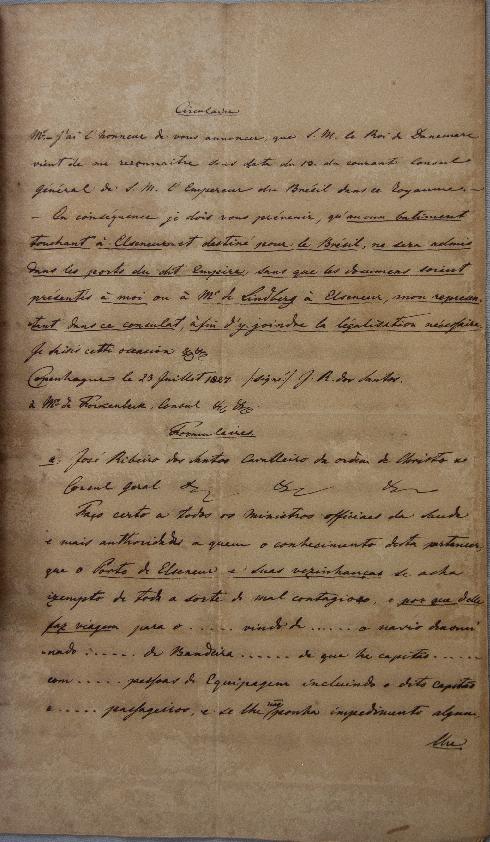 Circulaire
Mr. J'ai l'honneur de vous annoncer, que S. M. le Roi de Danemarc
vient de me reconnaitre sous date du 12. du courant Consul
général de S. M. l'Empereur du Brésil dans ce Royaume. —
— En conséquence je dois vous prévenir, qu'aucun batiment
touchant à Elseneur et destiné pour le Brésil, ne sera admis
dans les ports du dit Empire, sans que les documens soient
présentés à moi ou à Mr. de Lindberg à Elseneur, mon represen-
tant dans ce consulat, à fin d'y joindre la légalisation nécessaire.
Je saisis cette occasion &c &c
Copenhague le 23 Juillet 1827. /signé/ J. R. dos Santos.
à Mr. de Consul &c, &c.
Formulaires
a. José Ribeiro dos Santos Cavalleiro da ordem de Christo
Consul Geral &c &c &c
Faço certo a todos os Ministros officiaes da Saude
e mais authoridades a quem o conhecimento desta pertencer,
que o Porto de Elseneur e suas vezinhanças se acha
izempto de toda a sorte de mal contagioso, e por que delle
faz viagem para o ...... vindo de ...... o navio denomi-
nado ...... de Bandeira ...... de que he capitão ......
com ..... pessoas de Equipagem incluindo o dito capitão
e ..... passageiros, e se lhe não ponha impedimento algum